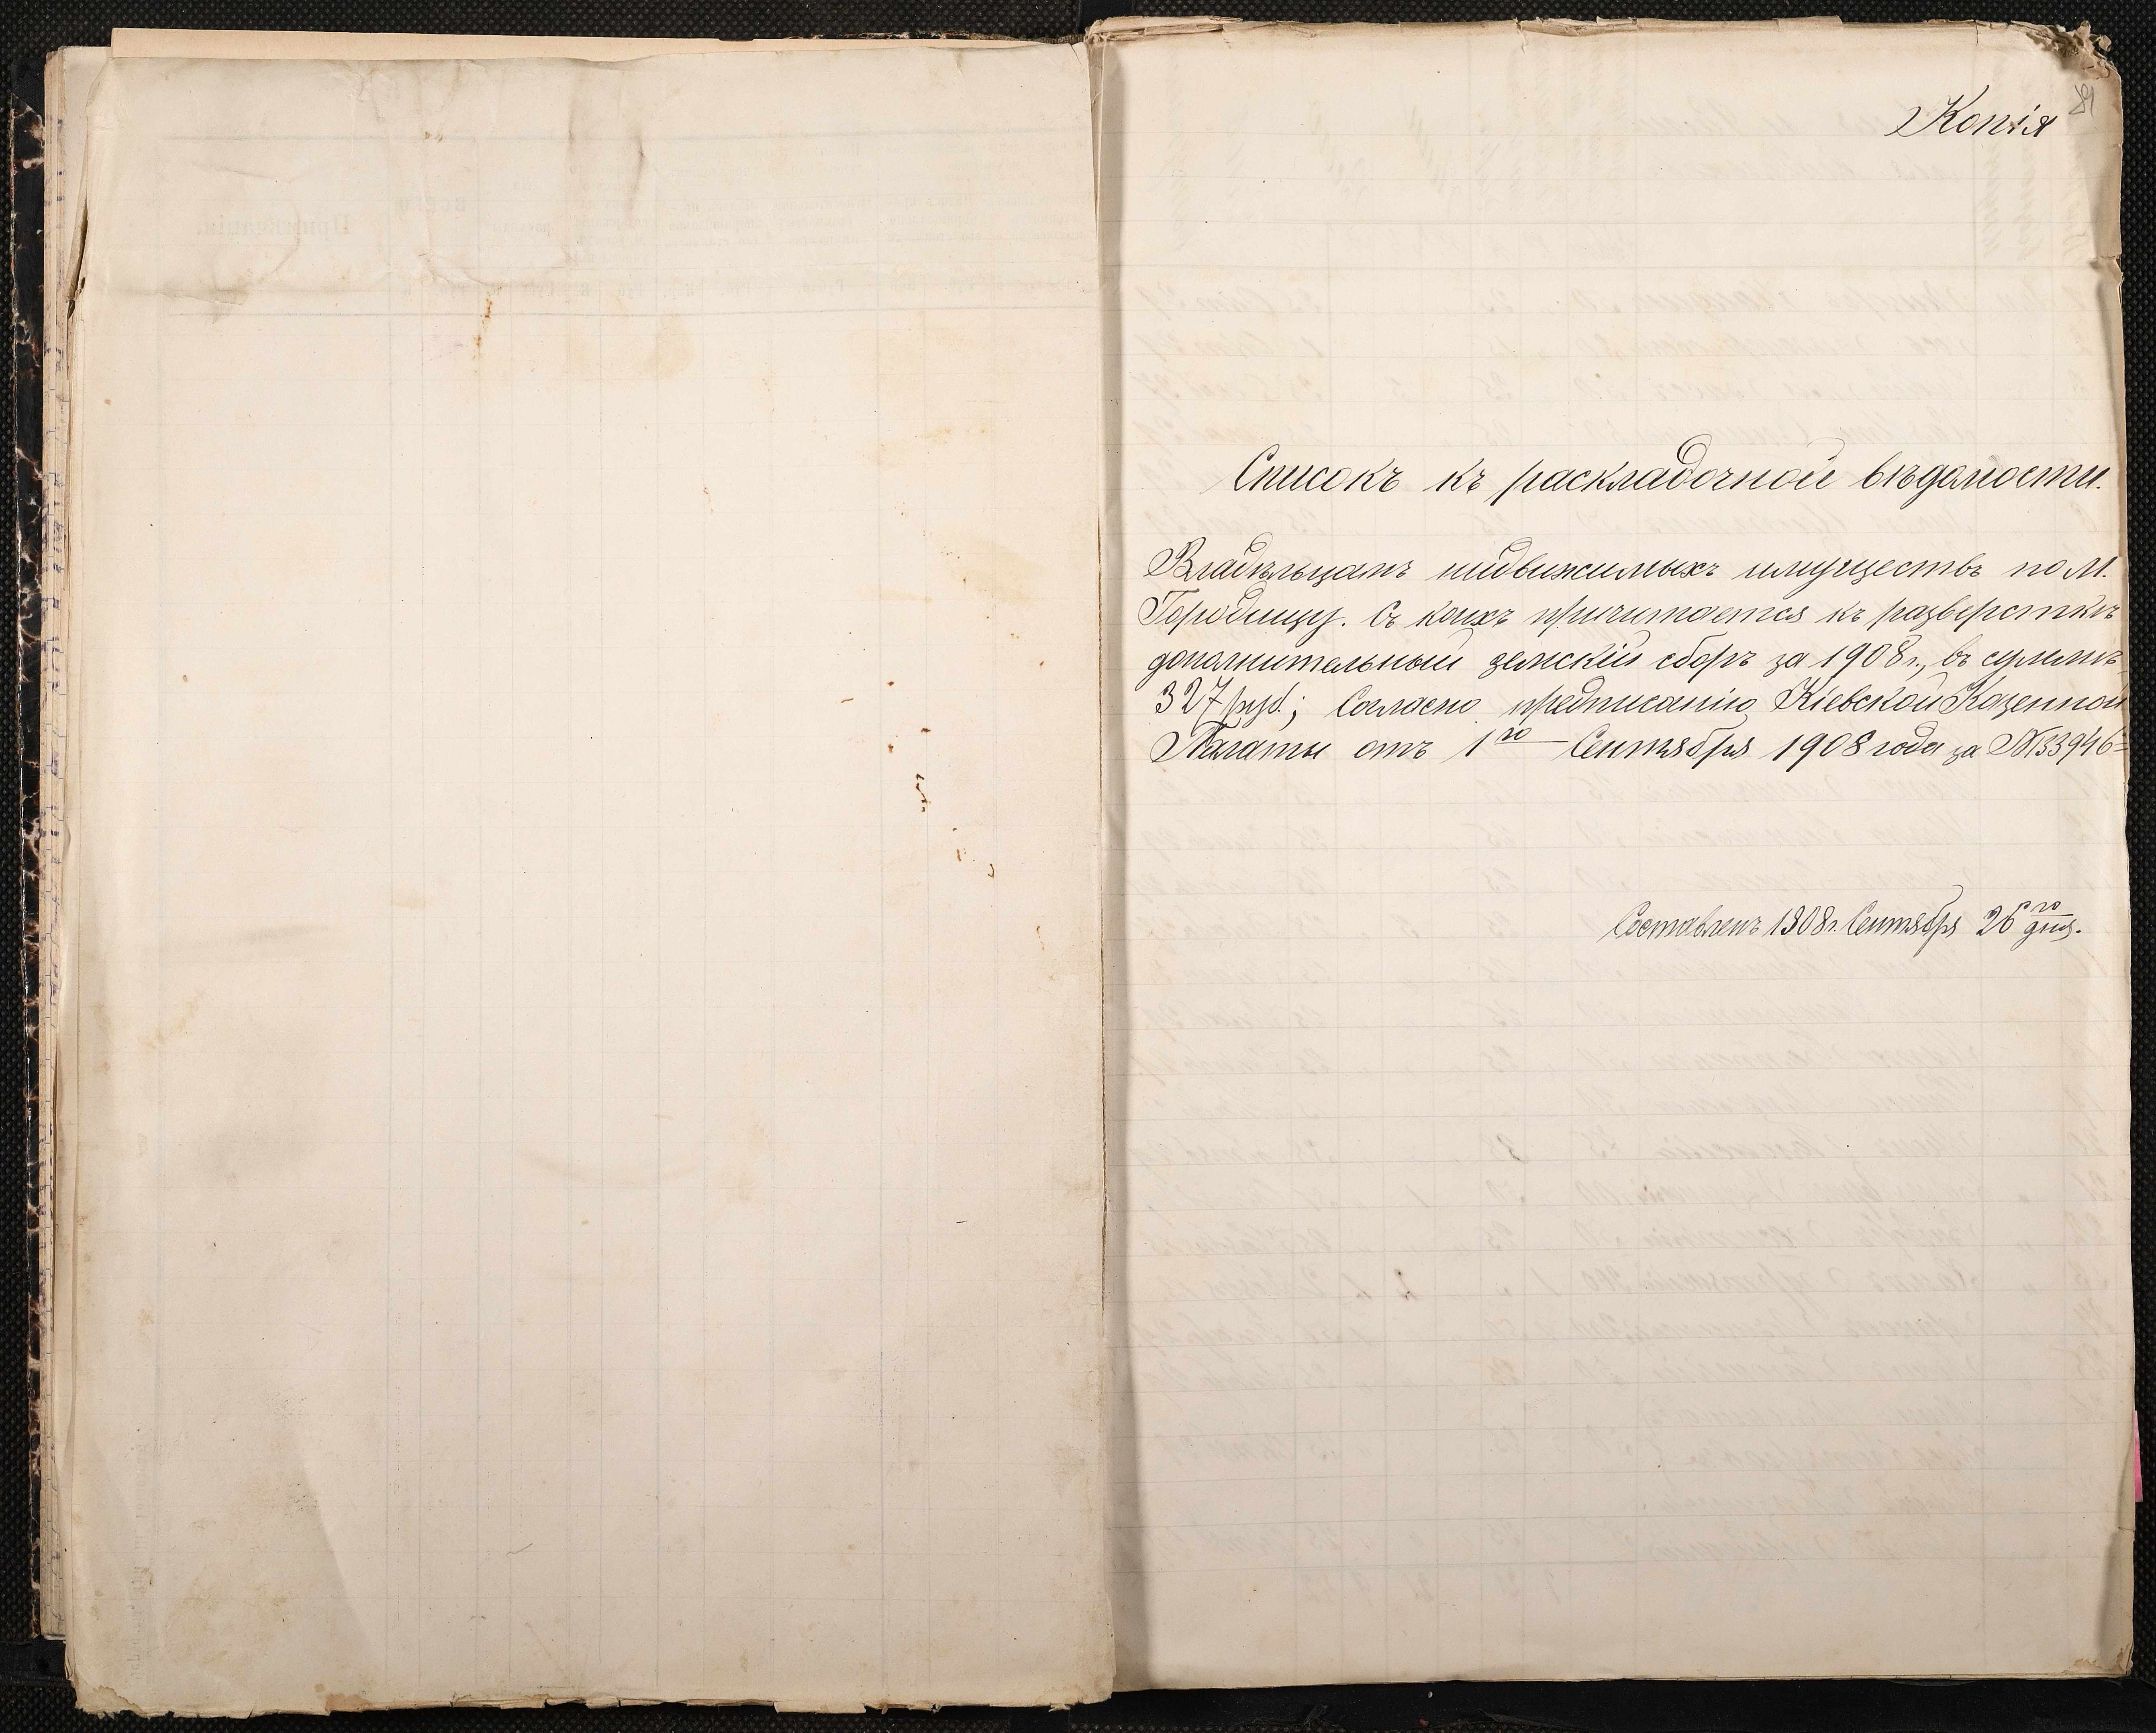 81
Копія
Списокъ къ раскладочной вѣдомости.
Владѣльцамъ недвижимыхъ имуществъ по М.
Городищу. Съ коихъ причитается къ разверсткѣ
дополнительный земскій сборъ за 1908 г., въ суммѣ
327 руб.; Согласно предписанію Кіевской Казенной
Палаты отъ 1го Сентября 1908 года за № 33946=
Составленъ 1908 г. Сентября 26го дня.